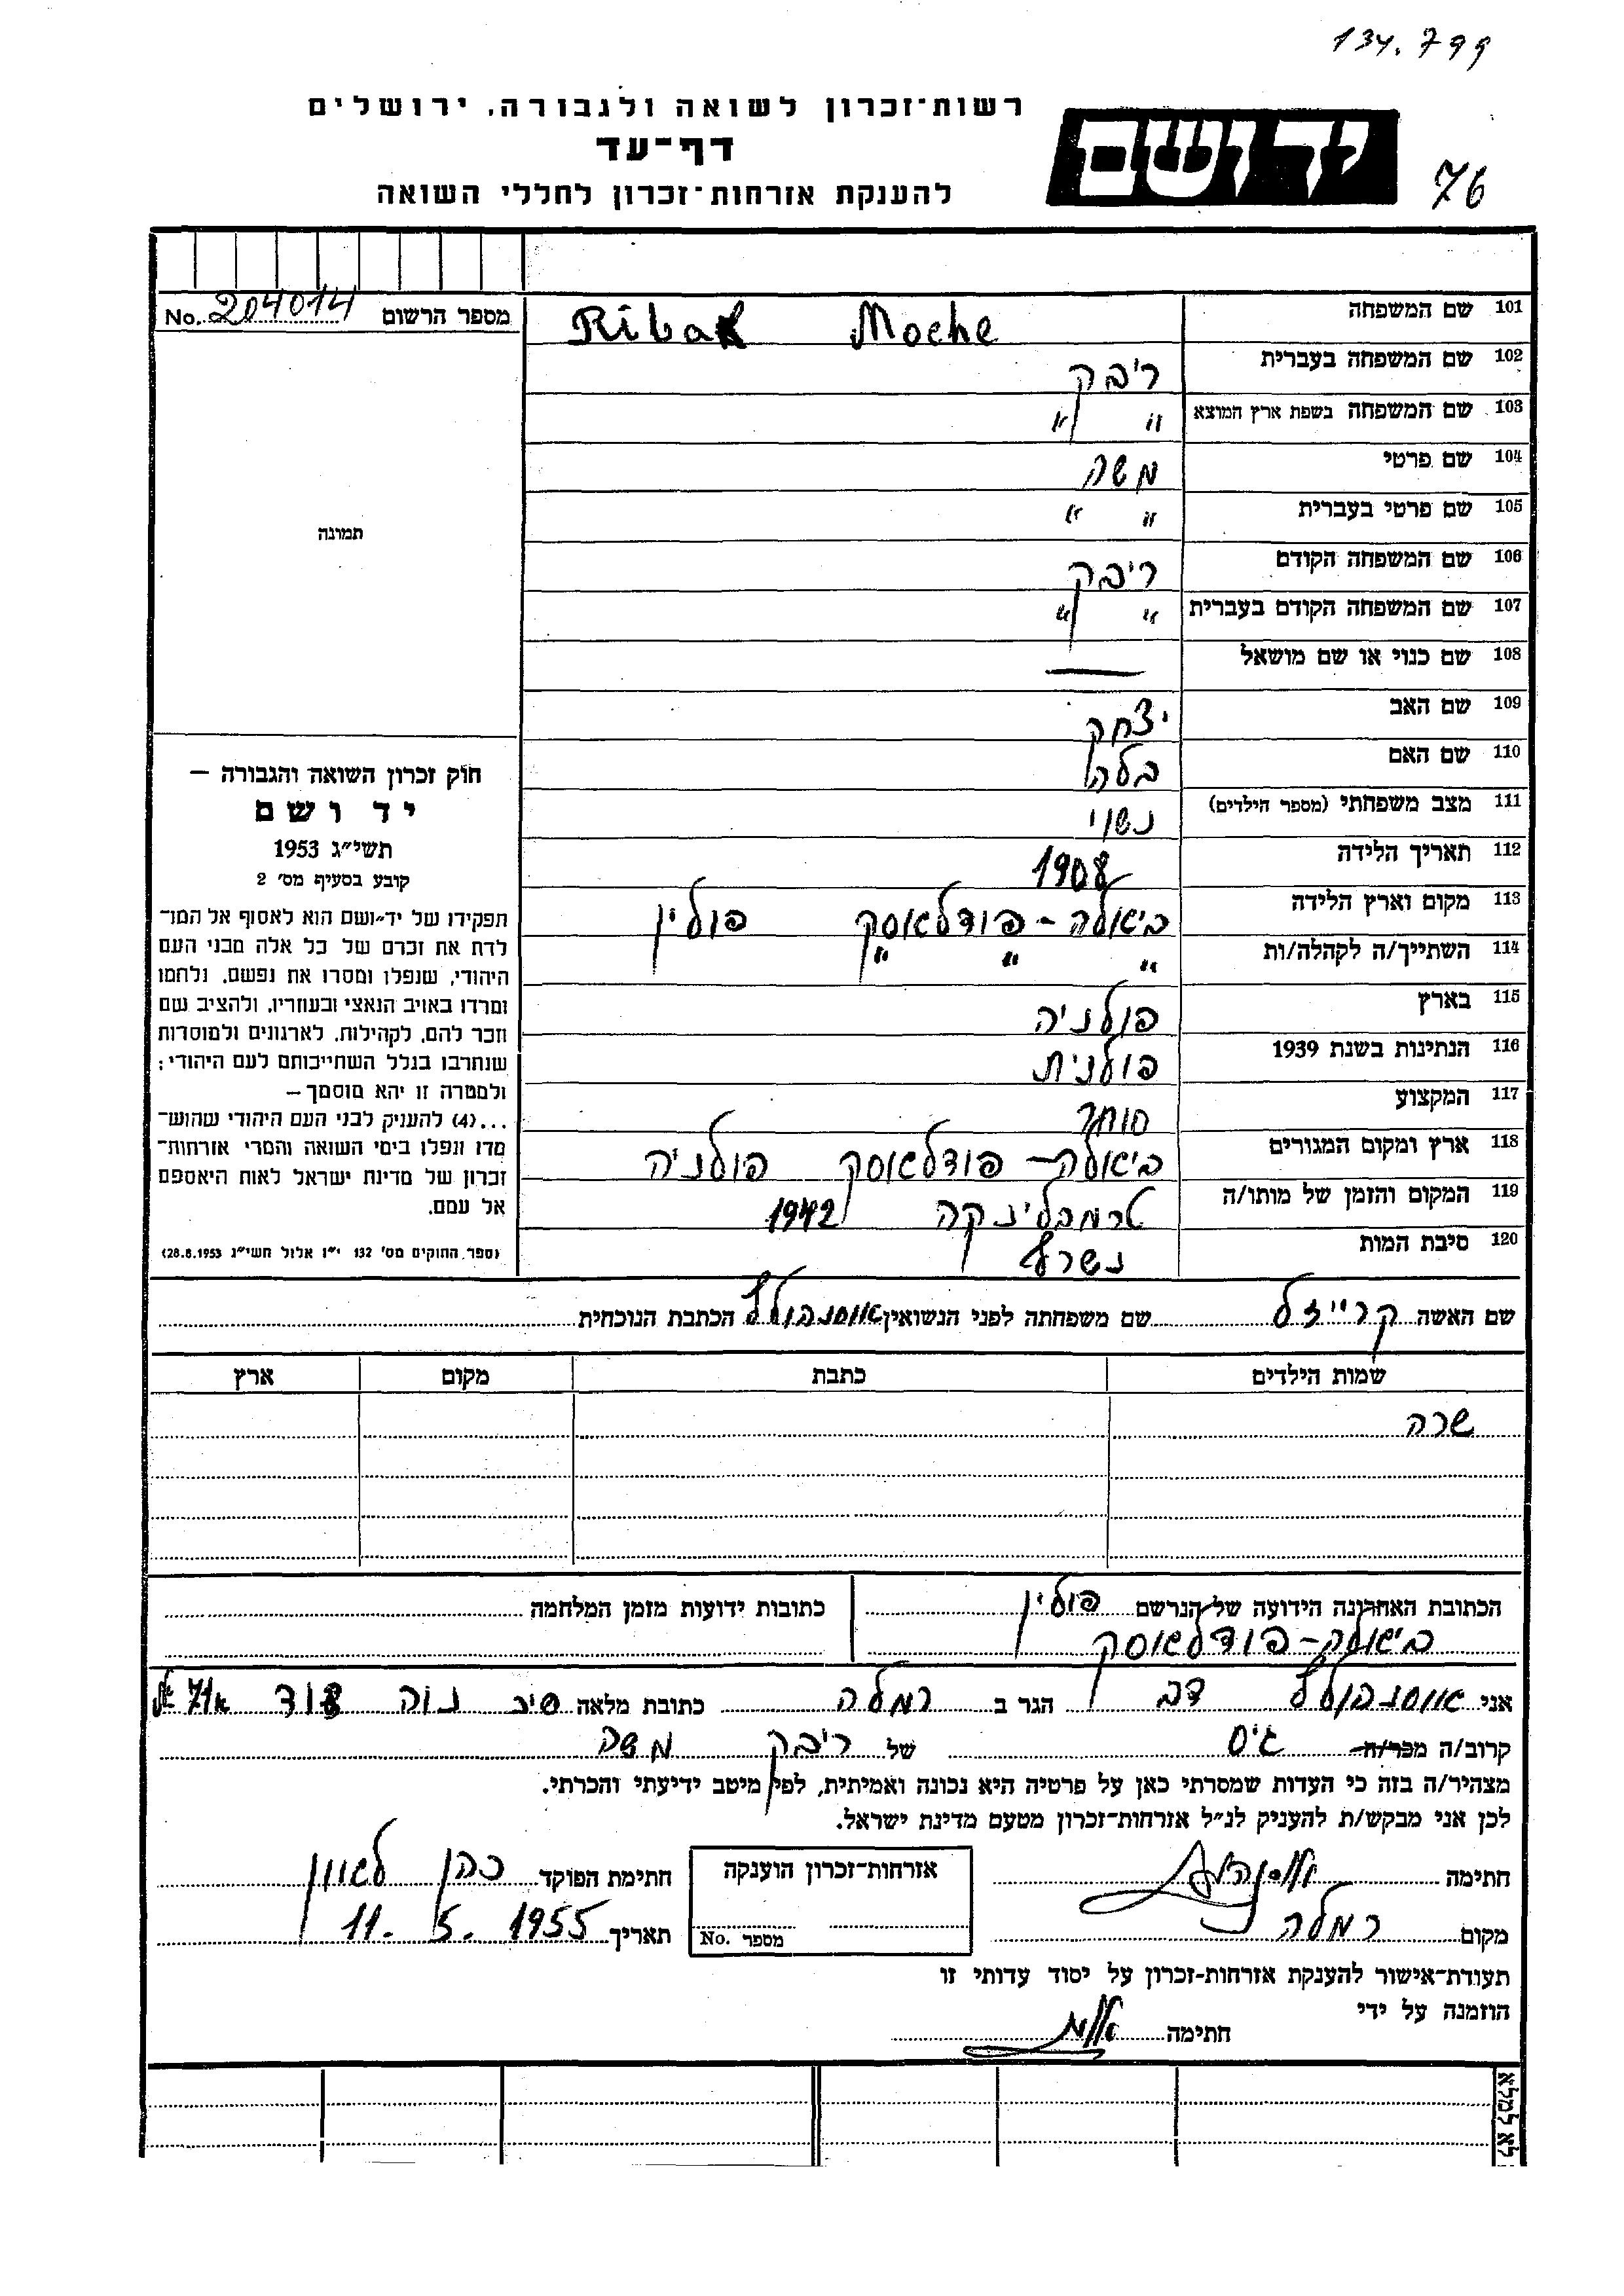 134.799
76
יד ושם
רשות-זכרון לשואה ולגבורה, ירושלים
דף-עד
להענקת אזרחות-זכרון לחללי השואה
מספר הרשום No. 204014
תמונה
חוק זכרון השואה והגבורה –
יד ושם
תשי״ג 1953
קובע בסעיף מס׳ 2
תפקידו של יד-ושם הוא לאסוף אל המו-
לדת את זכרם של כל אלה מבני העם
היהודי, שנפלו ומסרו את נפשם, נלחמו
ומרדו באויב הנאצי ובעוזריו, ולהציב שם
וזכר להם, לקהילות, לארגונים ולמוסדות
שנחרבו בגלל השתייכותם לעם היהודי;
ולמטרה זו יהא מוסמך –
...(4) להעניק לבני העם היהודי שהוש-
מדו ונפלו בימי השואה והמרי אזרחות-
זכרון של מדינת ישראל לאות היאספם
אל עמם.
(ספר החוקים מס׳ 132 י״ז אלול תשי״ג 28.8.1953)
101 שם המשפחה Ribak Moche
102 שם המשפחה בעברית ריבק
103 שם המשפחה בשפת ארץ המוצא " "
104 שם פרטי משה
105 שם פרטי בעברית " "
106 שם המשפחה הקודם ריבק
107 שם המשפחה הקודם בעברית " "
108 שם כנוי או שם מושאל —
109 שם האב יצחק
110 שם האם בלה
111 מצב משפחתי (מספר הילדים) נשוי
112 תאריך הלידה 1908
113 מקום וארץ הלידה ביאלה-פודלאסק פולין
114 השתייך/ה לקהלה/ות " " "
115 בארץ פולניה
116 הנתינות בשנת 1939 פולנית
117 המקצוע סוחר
118 ארץ ומקום המגורים ביאלה-פודלאסק פולניה
119 המקום והזמן של מותו/ה טרמבלינקה 1942
120 סיבת המות נשרף
שם האשה קרייזל שם משפחתה לפני הנשואין הכתבת הנוכחית
שמות הילדים כתבת מקום ארץ
שרה
הכתובת האחרונה הידועה של הנרשם פולין
ביאלה-פודלאסק
כתובות ידועות מזמן המלחמה
אני דב הגר ב רמלה כתובת מלאה נוה
קרוב/ה מכר/ה גיס של ריבק משה
מצהיר/ה בזה כי העדות שמסרתי כאן על פרטיה היא נכונה ואמיתית, לפי מיטב ידיעתי והכרתי.
לכן אני מבקש/ת להעניק לנ״ל אזרחות-זכרון מטעם מדינת ישראל.
חתימה
מקום רמלה
אזרחות-זכרון הוענקה
מספר No.
חתימת הפוקד כהן לאון
תאריך 11. 5. 1955
תעודת-אישור להענקת אזרחות-זכרון על יסוד עדותי זו
הוזמנה על ידי
חתימה
לא למלא